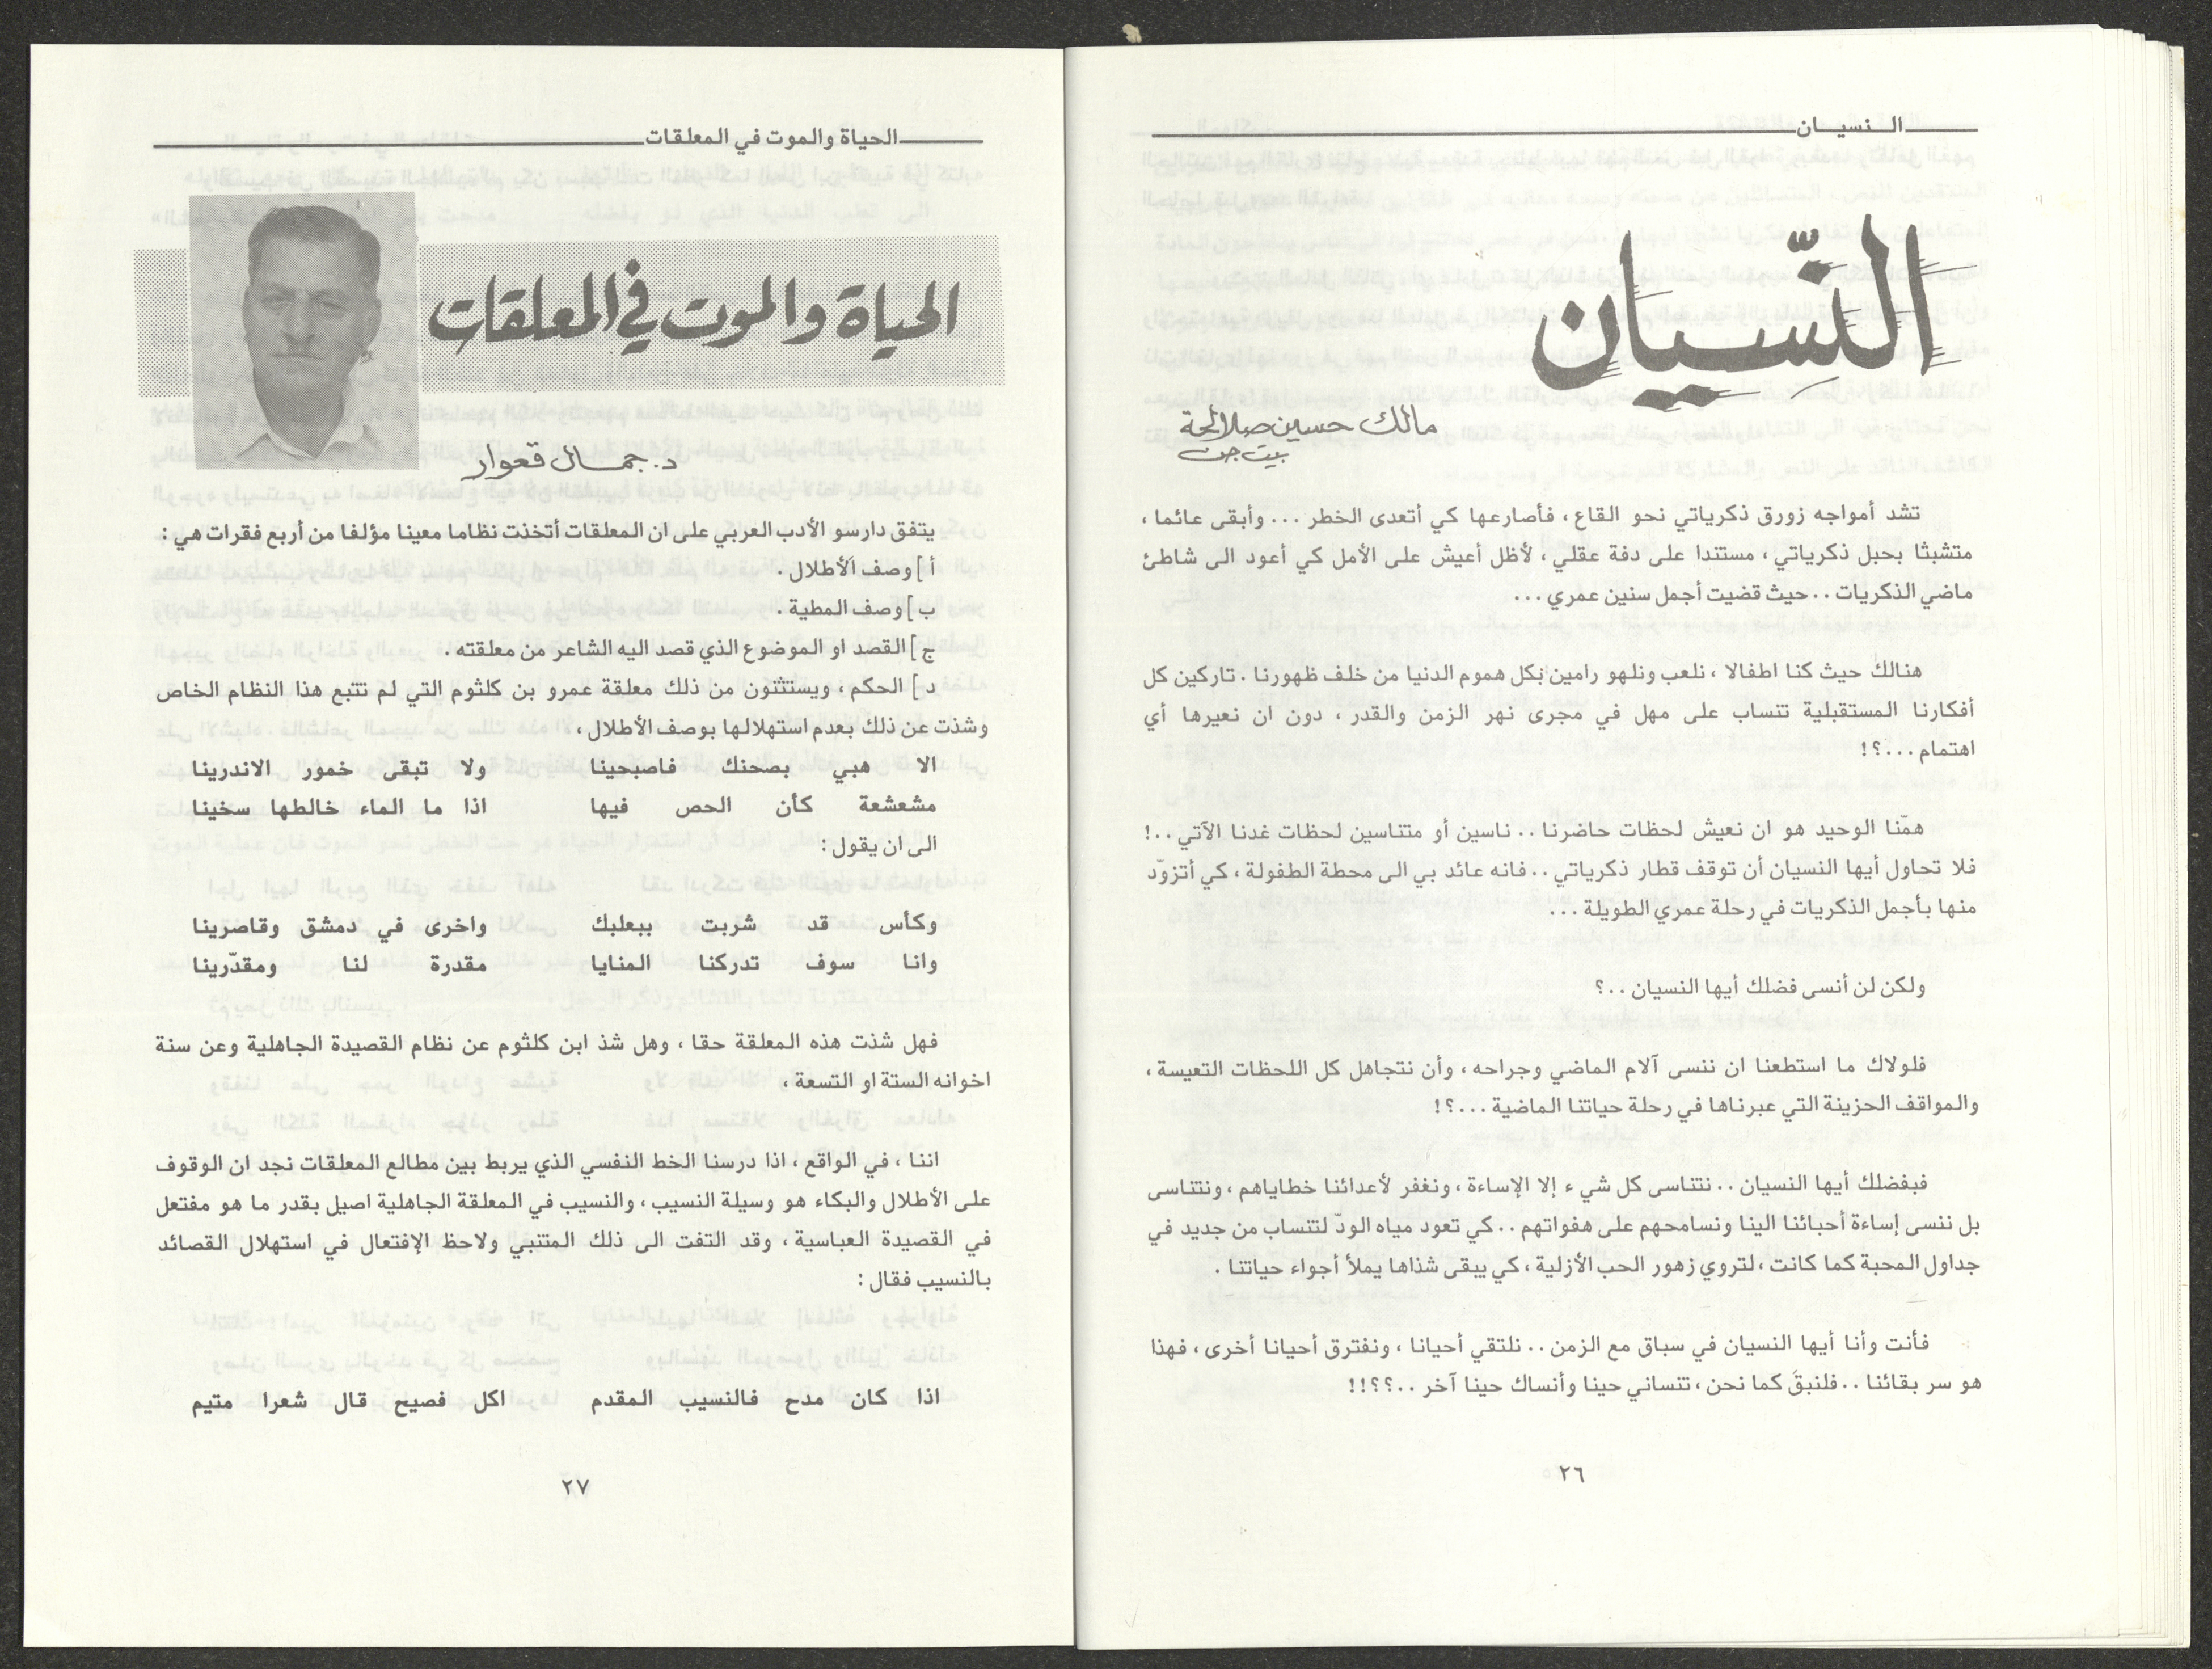 النسيان
النّسيان
مالك حسين صلالحة
بيت جن
تشد أمواجه زورق ذكرياتي نحو القاع ، فأصارعها كي أتعدى الخطر ... وأبقى عائما ،
متشبثا بحبل ذكرياتي ، مستندا على دفة عقلي ، لأظل أعيش على الأمل كي أعود الى شاطئ
ماضي الذكريات .. حيث قضيت أجمل سنين عمري ...
هنالك حيث كنا اطفالا ، نلعب ونلهو رامين بكل هموم الدنيا من خلف ظهورنا . تاركين كل
أفكارنا المستقبلية تنساب على مهل في مجرى نهر الزمن والقدر ، دون ان نعيرها أي
اهتمام ...؟!
همّنا الوحيد هو ان نعيش لحظات حاضرنا .. ناسين أو متناسين لحظات غدنا الآتي ..!
فلا تحاول أيها النسيان أن توقف قطار ذكرياتي .. فانه عائد بي الى محطة الطفولة ، كي أتزوّد
منها بأجمل الذكريات في رحلة عمري الطويلة ...
ولكن لن أنسى فضلك أيها النسيان ..؟
فلولاك ما استطعنا ان ننسى آلام الماضي وجراحه ، وأن نتجاهل كل اللحظات التعيسة ،
والمواقف الحزينة التي عبرناها في رحلة حياتنا الماضية ...؟!
فبفضلك أيها النسيان .. نتناسى كل شيء إلا الإساءة ، ونغفر لأعدائنا خطاياهم ، ونتناسى
بل ننسى إساءة أحبائنا الينا ونسامحهم على هفواتهم .. كي تعود مياه الودّ لتنساب من جديد في
جداول المحبة كما كانت ، لتروي زهور الحب الأزلية ، كي يبقى شذاها يملأ أجواء حياتنا .
فأنت وأنا أيها النسيان في سباق مع الزمن .. نلتقي أحيانا ، ونفترق أحيانا أخرى ، فهذا
هو سر بقائنا .. فلنبقَ كما نحن ، تنساني حينا وأنساك حينا آخر ..؟؟!!
٢٦
الحياة والموت في المعلقات
الحياة والموت في المعلقات
د. جمال قعوار
يتفق دارسو الأدب العربي على ان المعلقات أتخذت نظاما معينا مؤلفا من أربع فقرات هي :
أ ] وصف الأطلال .
ب ] وصف المطية .
ج ] القصد او الموضوع الذي قصد اليه الشاعر من معلقته .
د ] الحكم ، ويستثنون من ذلك معلقة عمرو بن كلثوم التي لم تتبع هذا النظام الخاص
وشذت عن ذلك بعدم استهلالها بوصف الأطلال ،
الا هبي بصحنك فاصبحينا ولا تبقى خمور الاندرينا
مشعشعة كأن الحص فيها اذا ما الماء خالطها سخينا
الى ان يقول :
وكأس قد شربت ببعلبك واخرى في دمشق وقاصرينا
وانا سوف تدركنا المنايا مقدرة لنا ومقدّرينا
فهل شذت هذه المعلقة حقا ، وهل شذ ابن كلثوم عن نظام القصيدة الجاهلية وعن سنة
اخوانه الستة او التسعة ،
اننا ، في الواقع ، اذا درسنا الخط النفسي الذي يربط بين مطالع المعلقات نجد ان الوقوف
على الأطلال والبكاء هو وسيلة النسيب ، والنسيب في المعلقة الجاهلية اصيل بقدر ما هو مفتعل
في القصيدة العباسية ، وقد التفت الى ذلك المتنبي ولاحظ الإفتعال في استهلال القصائد
بالنسيب فقال :
اذا كان مدح فالنسيب المقدم اكل فصيح قال شعرا متيم
٢٧